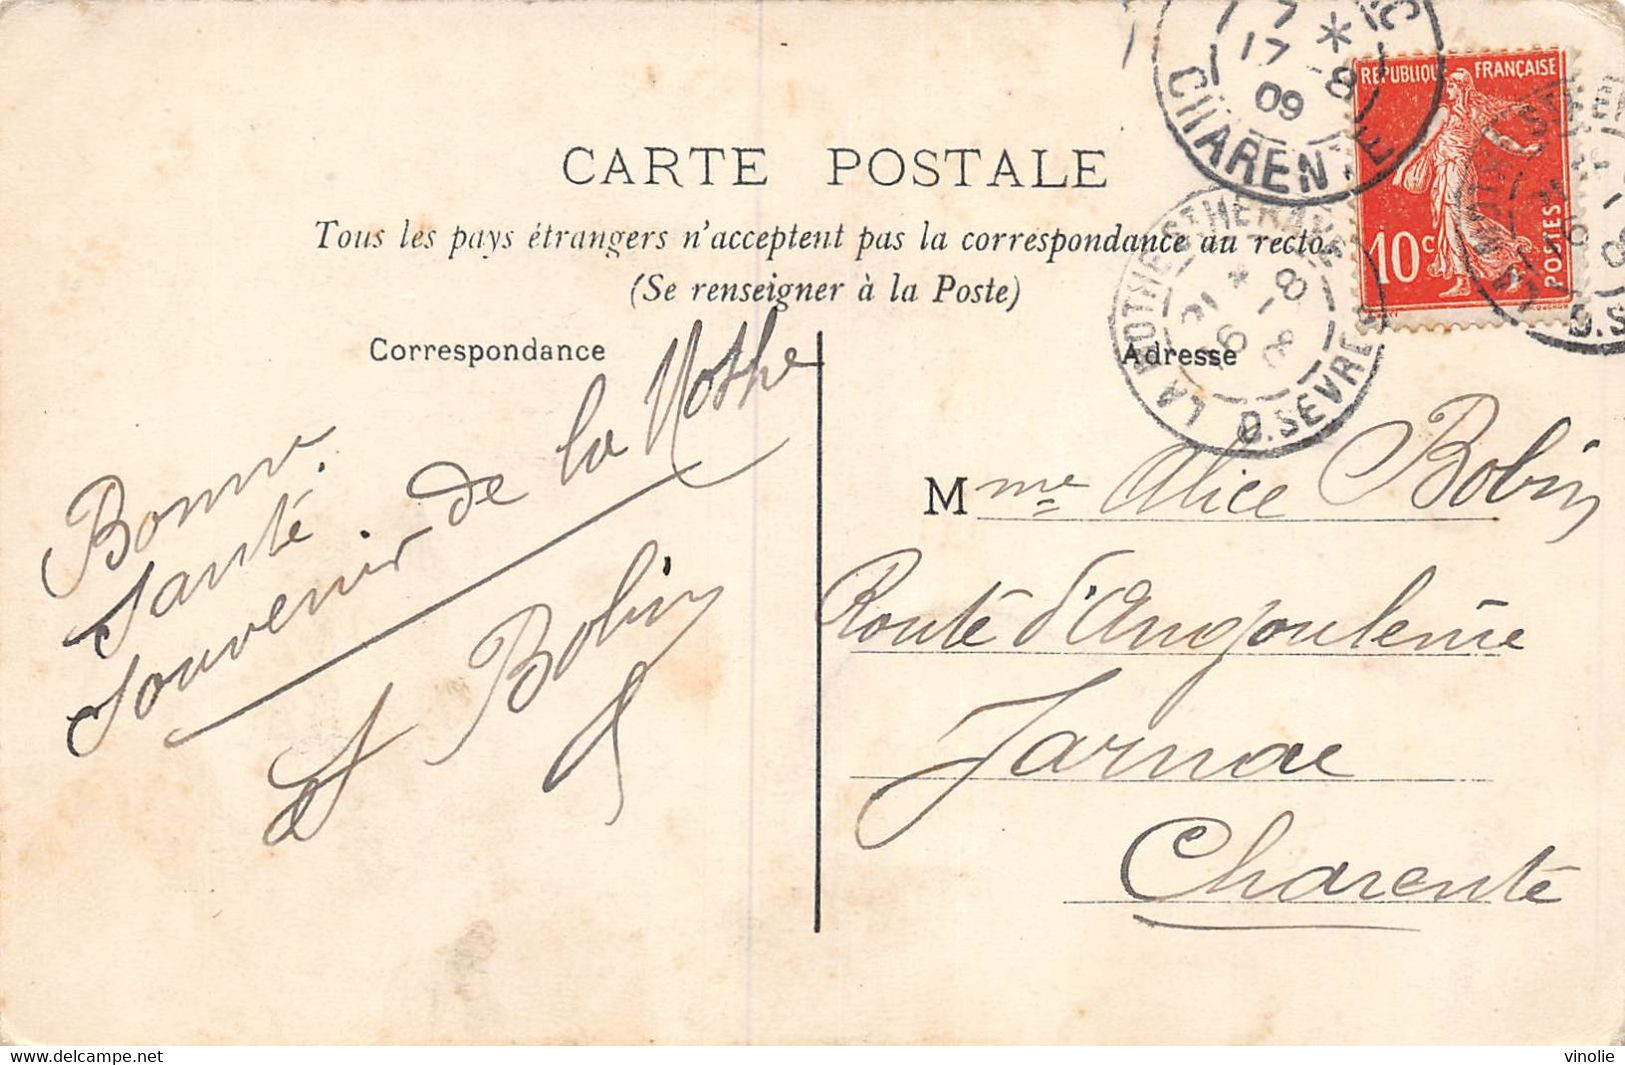 CARTE POSTALE
Tous les pays étrangers n'acceptent pas la correspondance au recto
(Se renseigner à la Poste)
Correspondance
Adresse
Bonne
Santé
Souvenir de la Mothe
A Bobin
Mme Alice Bobin
Route d'Angoulême
Jarnac
Charente
REPUBLIQUE FRANÇAISE
10c
POSTES
17 -8
09
CHARENTE
LA MOTHE-ST-HERAYE
D. SEVRES
delcampe.net
vinolie